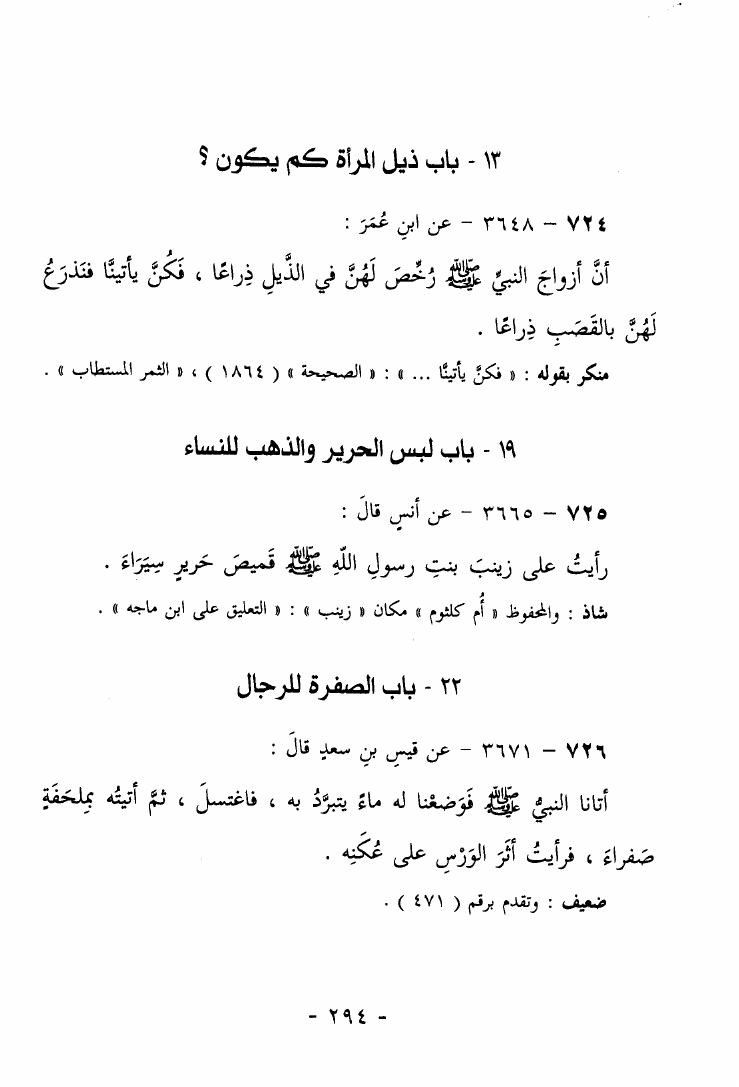 ١٣ - باب ذيل المرأة كم يكون ؟
٧٢٤ – ٣٦٤٨ – عن ابنِ عُمَرَ :
أنَّ أزواجَ النبيِّ ﷺ رُخِّصَ لَهُنَّ في الذَّيلِ ذِراعًا ، فَكُنَّ يأتينَّا فنَذرَعُ
لَهُنَّ بالقَصَبِ ذِراعًا .
منكر بقوله : « فكنَّ يأتينَّا ... » : « الصحيحة » ( ١٨٦٤ ) ، « الثمر المستطاب » .
١٩ - باب لبس الحرير والذهب للنساء
٧٢٥ – ٣٦٦٥ – عن أنسٍ قالَ :
رأيتُ على زينبَ بنتِ رسولِ اللَّهِ ﷺ قَميصَ حَريرٍ سِيَرَاءَ .
شاذ : والمحفوظ « أُم كلثوم » مكان « زينب » : « التعليق على ابن ماجه » .
٢٢ - باب الصفرة للرجال
٧٢٦ – ٣٦٧١ – عن قيسِ بنِ سعدٍ قالَ :
أتانا النبيُّ ﷺ فَوَضعْنا له ماءً يتبرَّدُ به ، فاغتسلَ ، ثمَّ أتيتُه بمِلحَفَةٍ
صَفراءَ ، فرأيتُ أثَرَ الوَرْسِ على عُكَنِه .
ضعيف : وتقدم برقم ( ٤٧١ ) .
- ٢٩٤ -